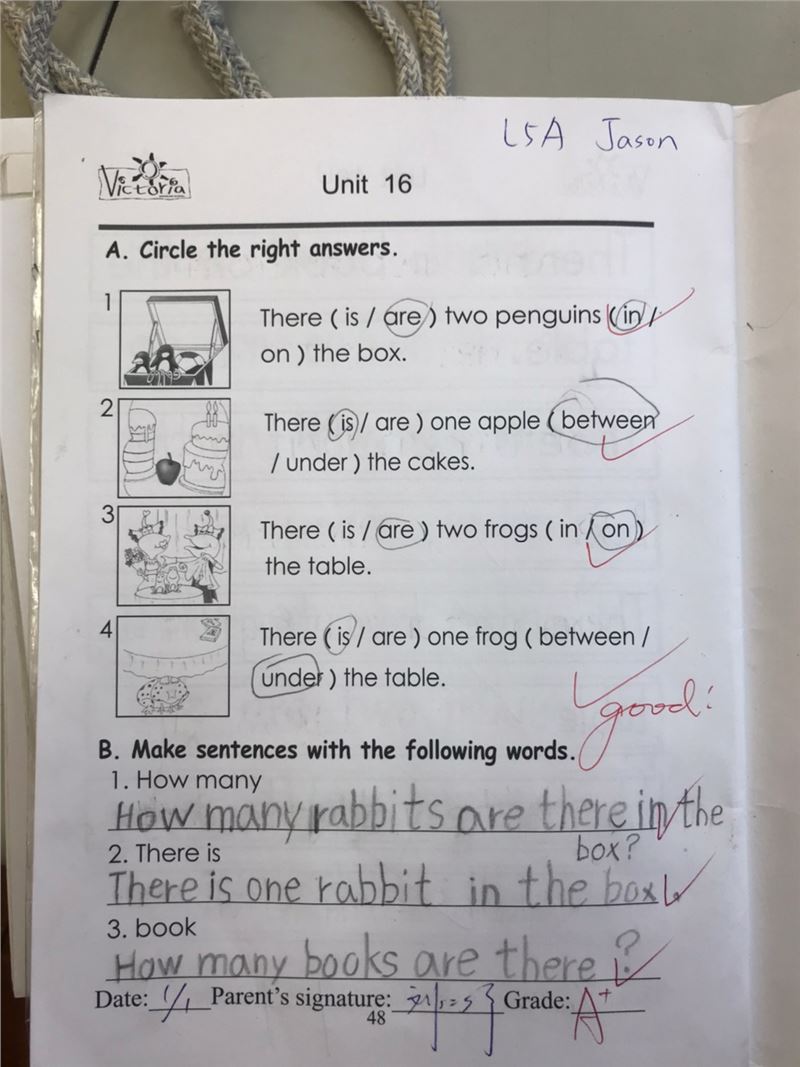 L5A Jason
Victoria
Unit 16
A. Circle the right answers.
1
There ( is / are ) two penguins ( in /
on ) the box.
2
There ( is / are ) one apple ( between
/ under ) the cakes.
3
There ( is / are ) two frogs ( in / on )
the table.
4
There ( is / are ) one frog ( between /
under ) the table.
good!
B. Make sentences with the following words.
1. How many
How many rabbits are there in the
box?
2. There is
There is one rabbit in the box.
3. book
How many books are there ?
Date: 1/1 Parent's signature: Grade: A+
48